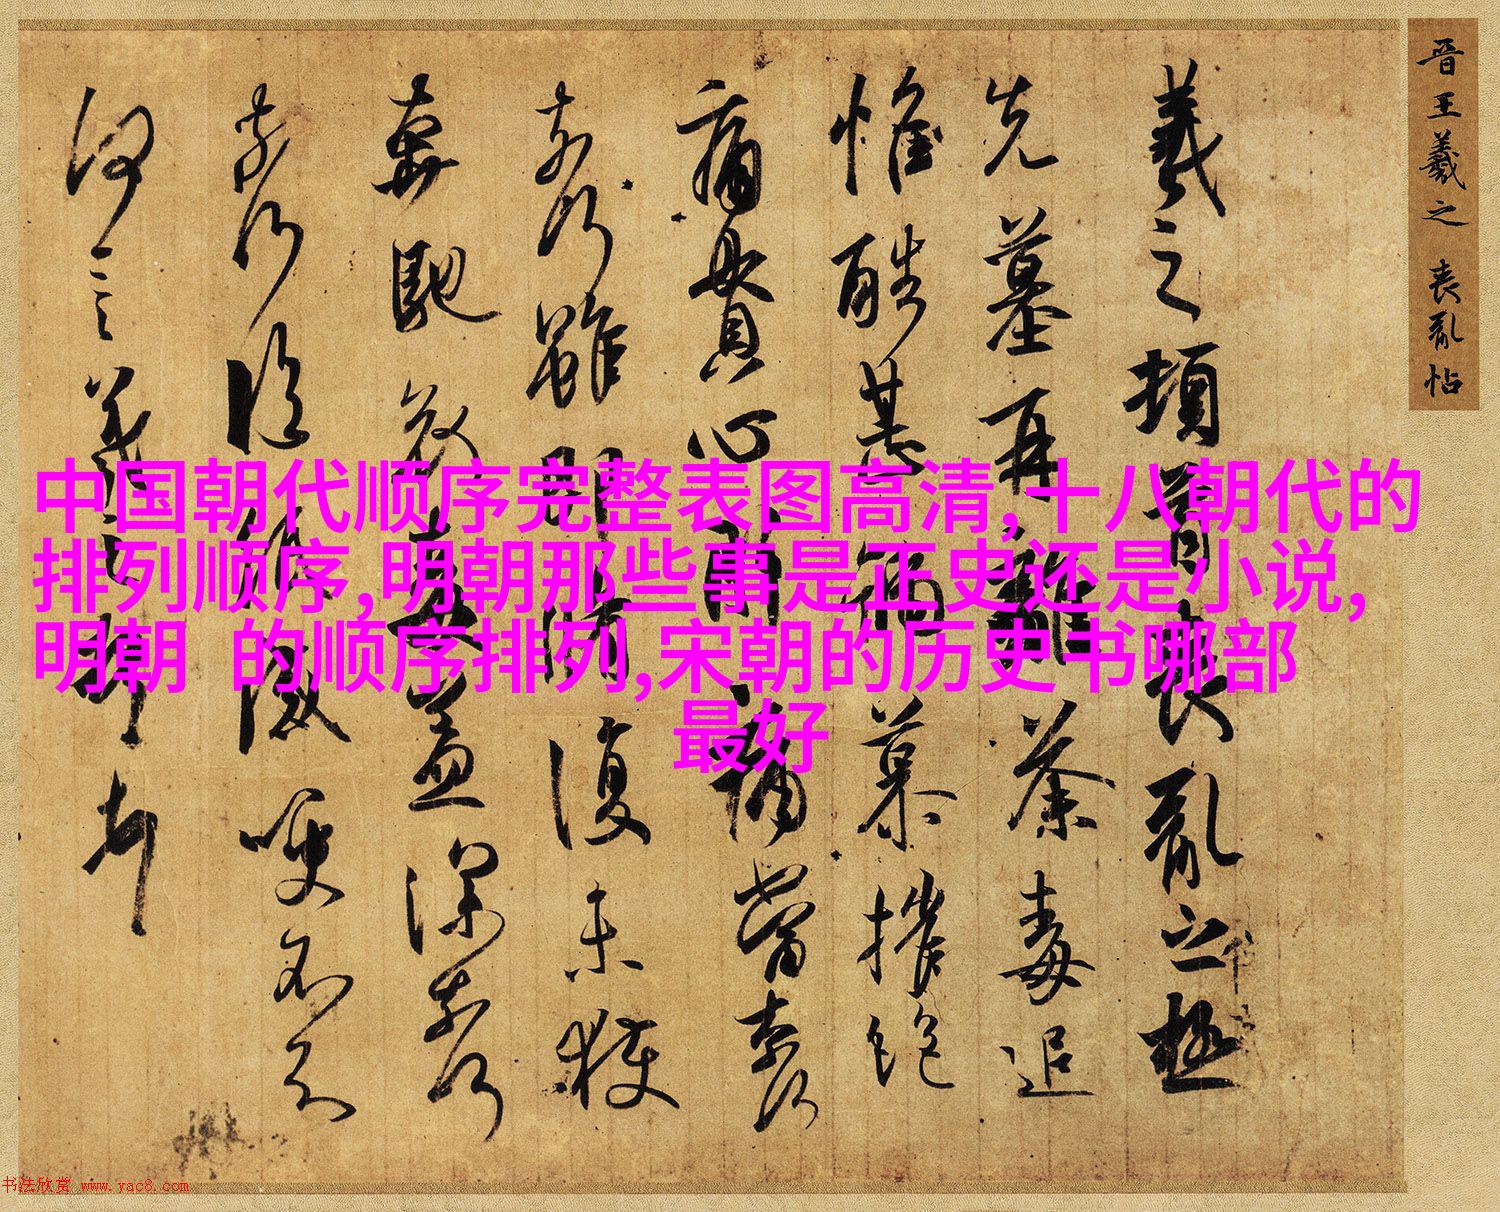 中国朝代顺序完整表图高清,十八朝代的
排列顺序,明朝那些事是正史还是小说,
明朝 的顺序排列,宋朝的历史书哪部
最好
晋王羲之 喪亂帖
羲之頓首喪亂之極
先墓再離荼毒追
惟酷甚號慕摧絕
痛貫心肝痛當奈何
奈何雖即脩復未獲
奔馳哀毒益深奈何
奈何臨紙感哽不知
何言羲之頓首
书法欣赏 www.yac8.com